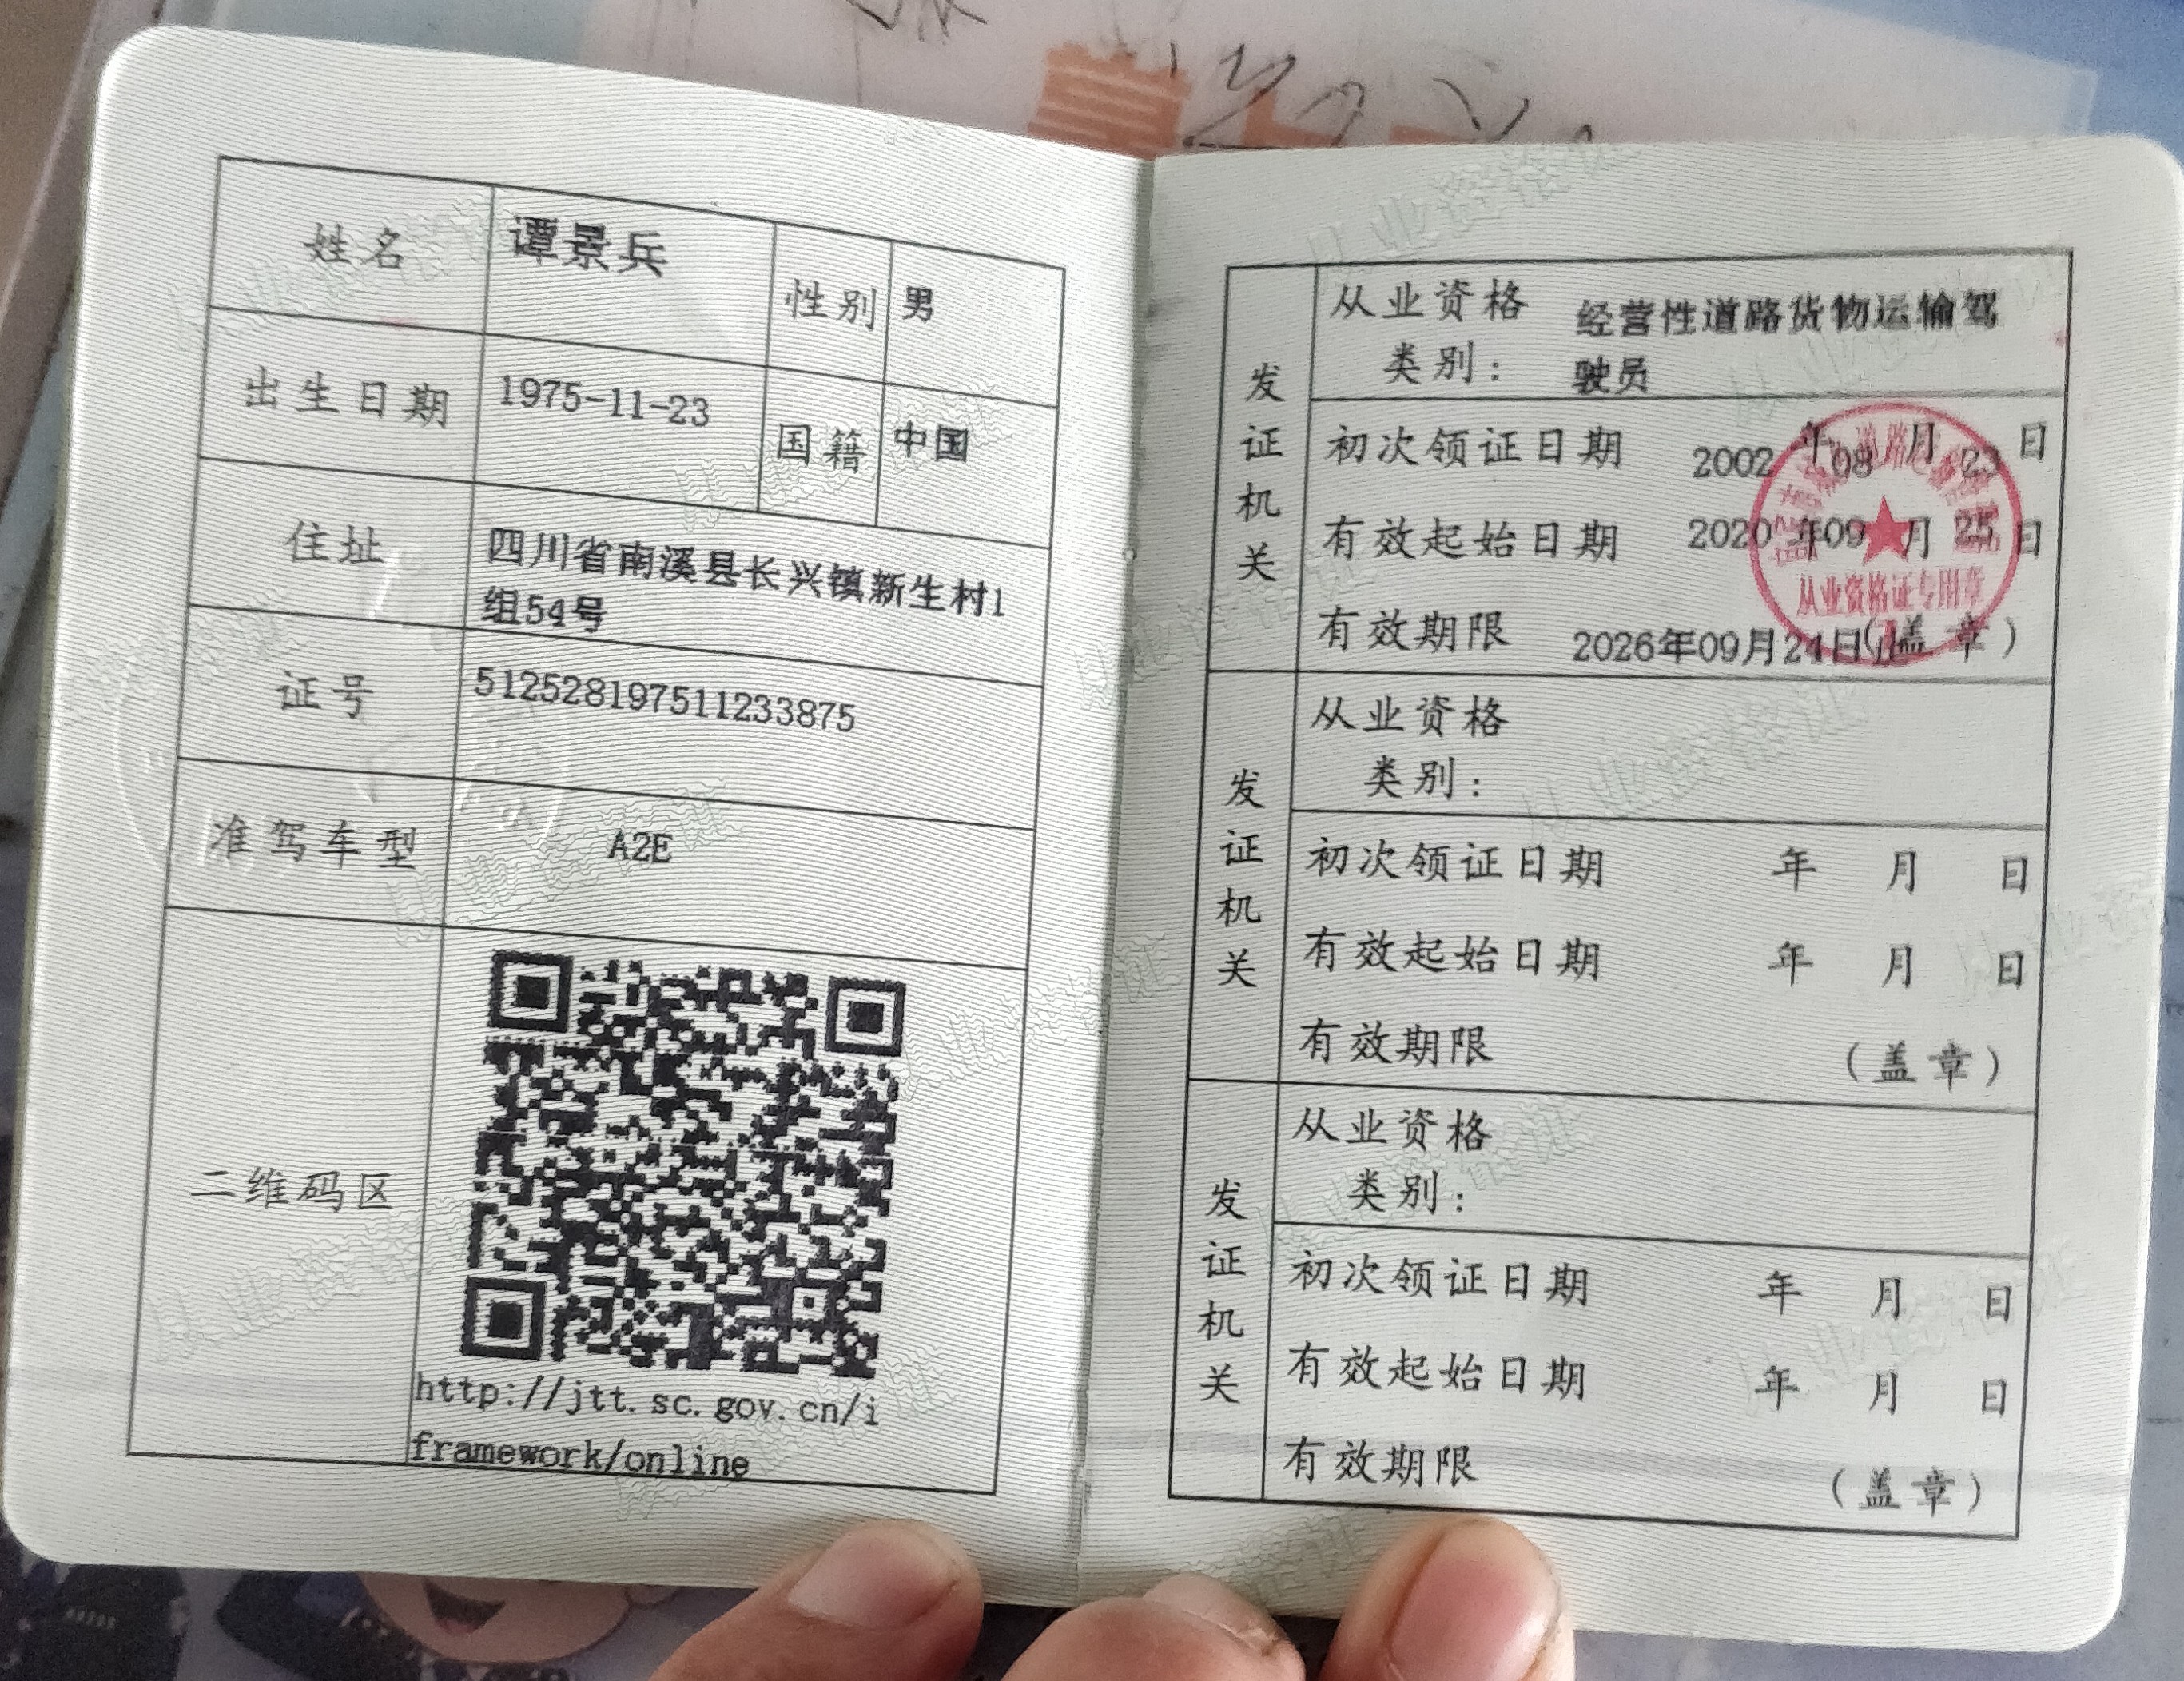 姓名 谭景兵 性别 男
出生日期 1975-11-23 国籍 中国
住址 四川省南溪县长兴镇新生村1
组54号
证号 512528197511233875
准驾车型 A2E
二维码区
http://jtt.sc.gov.cn/i
framework/online
发证机关
从业资格 经营性道路货物运输驾
类别： 驶员
初次领证日期 2002年08月23日
有效起始日期 2020年09月25日
有效期限 2026年09月24日止(盖章)
从业资格证专用章
发证机关
从业资格
类别：
初次领证日期 年 月 日
有效起始日期 年 月 日
有效期限 (盖章)
发证机关
从业资格
类别：
初次领证日期 年 月 日
有效起始日期 年 月 日
有效期限 (盖章)
从业资格证